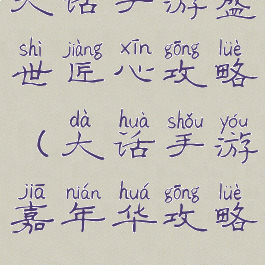 大话手游盛
shì jiàng xīn gōng lüè
世匠心攻略
dà huà shǒu yóu
(大话手游
jiā nián huá gōng lüè
嘉年华攻略